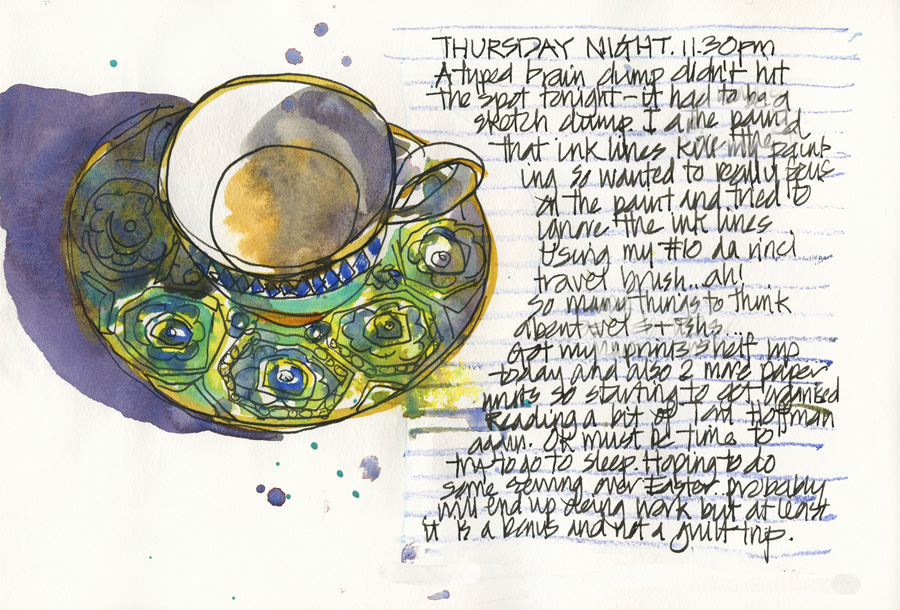 THURSDAY NIGHT. 11.30pm
A typed brain dump didn't hit
the spot tonight - it had to be a
sketch dump. I a the paint
that ink lines kill the paint
ing so wanted to really focus
on the paint and tried to
ignore the ink lines
Using my #10 da vinci
travel brush..ah!
So many things to think
about wet
Got my prints shelf up
today and also 2 more paper
units so starting to get organised
Reading a bit of Tom Hoffman
again. OK must be time to
try to go to sleep. Hoping to do
some sewing over Easter. probably
will end up doing work but at least
it is a bonus and not a guilt trip.